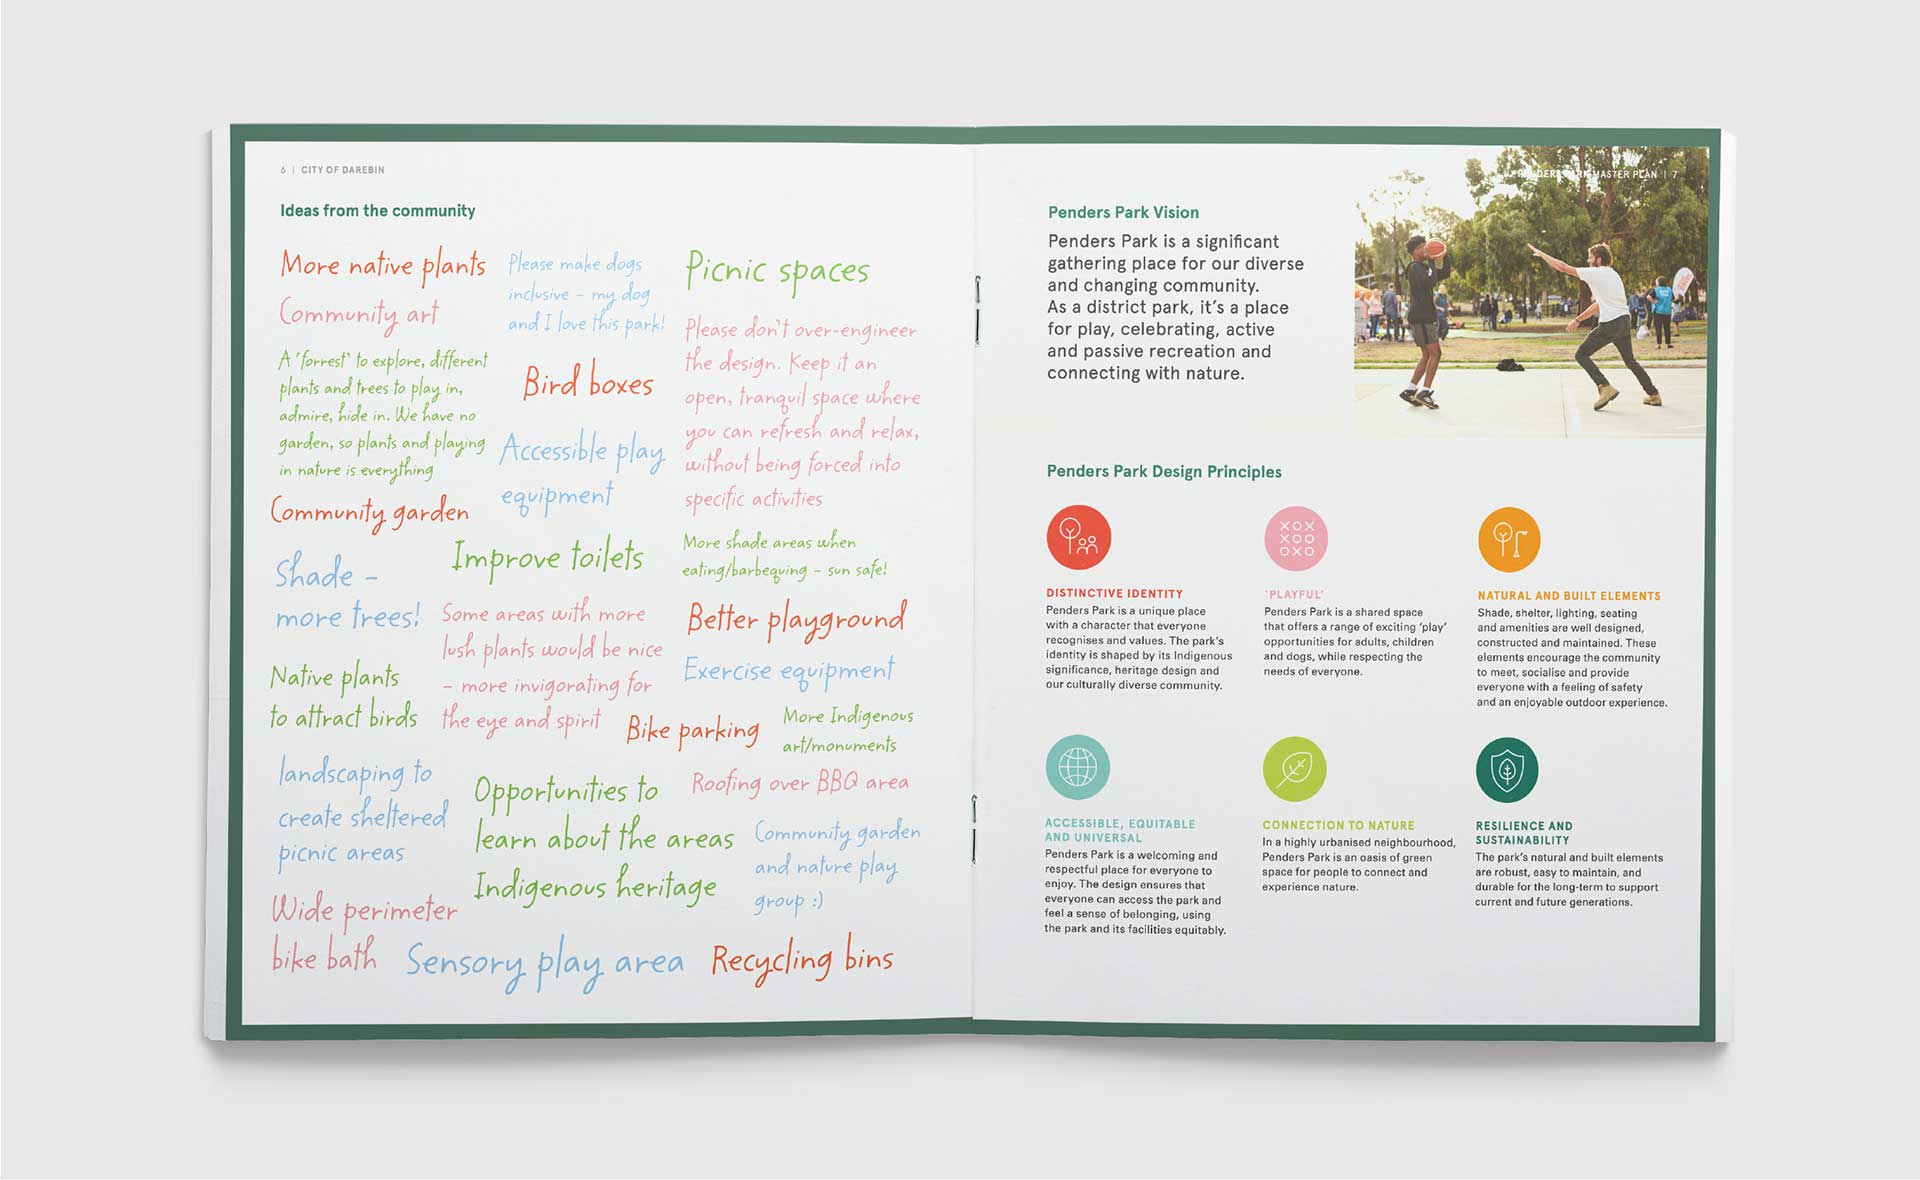 6 | CITY OF DAREBIN
Ideas from the community
More native plants
Community art
A 'forrest' to explore, different
plants and trees to play in,
admire, hide in. We have no
garden, so plants and playing
in nature is everything
Community garden
Shade –
more trees!
Native plants
to attract birds
landscaping to
create sheltered
picnic areas
Wide perimeter
bike bath
Please make dogs
inclusive – my dog
and I love this park!
Bird boxes
Accessible play
equipment
Improve toilets
Some areas with more
lush plants would be nice
– more invigorating for
the eye and spirit
Opportunities to
learn about the areas
Indigenous heritage
Sensory play area
Picnic spaces
Please don't over-engineer
the design. Keep it an
open, tranquil space where
you can refresh and relax,
without being forced into
specific activities
More shade areas when
eating/barbequing – sun safe!
Better playground
Exercise equipment
Bike parking
More Indigenous
art/monuments
Roofing over BBQ area
Community garden
and nature play
group :)
Recycling bins
PENDERS PARK MASTER PLAN | 7
Penders Park Vision
Penders Park is a significant
gathering place for our diverse
and changing community.
As a district park, it's a place
for play, celebrating, active
and passive recreation and
connecting with nature.
Penders Park Design Principles
DISTINCTIVE IDENTITY
Penders Park is a unique place
with a character that everyone
recognises and values. The park's
identity is shaped by its Indigenous
significance, heritage design and
our culturally diverse community.
XOX
XOO
OXO
'PLAYFUL'
Penders Park is a shared space
that offers a range of exciting 'play'
opportunities for adults, children
and dogs, while respecting the
needs of everyone.
NATURAL AND BUILT ELEMENTS
Shade, shelter, lighting, seating
and amenities are well designed,
constructed and maintained. These
elements encourage the community
to meet, socialise and provide
everyone with a feeling of safety
and an enjoyable outdoor experience.
ACCESSIBLE, EQUITABLE
AND UNIVERSAL
Penders Park is a welcoming and
respectful place for everyone to
enjoy. The design ensures that
everyone can access the park and
feel a sense of belonging, using
the park and its facilities equitably.
CONNECTION TO NATURE
In a highly urbanised neighbourhood,
Penders Park is an oasis of green
space for people to connect and
experience nature.
RESILIENCE AND
SUSTAINABILITY
The park's natural and built elements
are robust, easy to maintain, and
durable for the long-term to support
current and future generations.